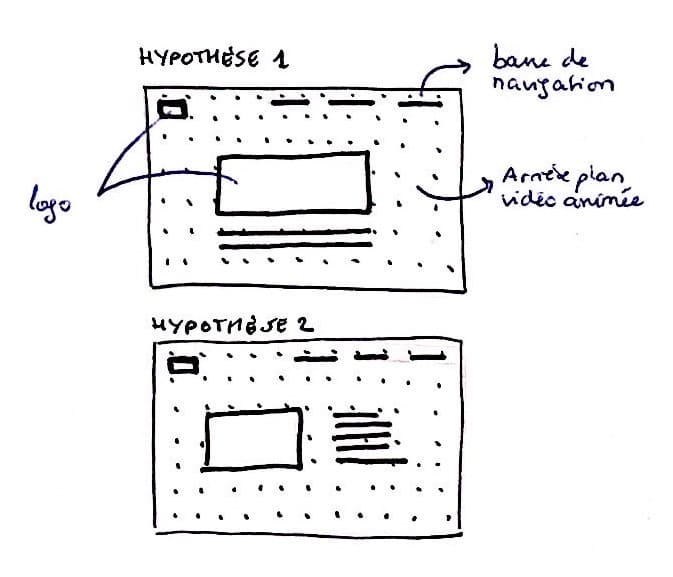 HYPOTHÈSE 1
barre de
navigation
Arrière plan
vidéo animée
logo
HYPOTHÈSE 2